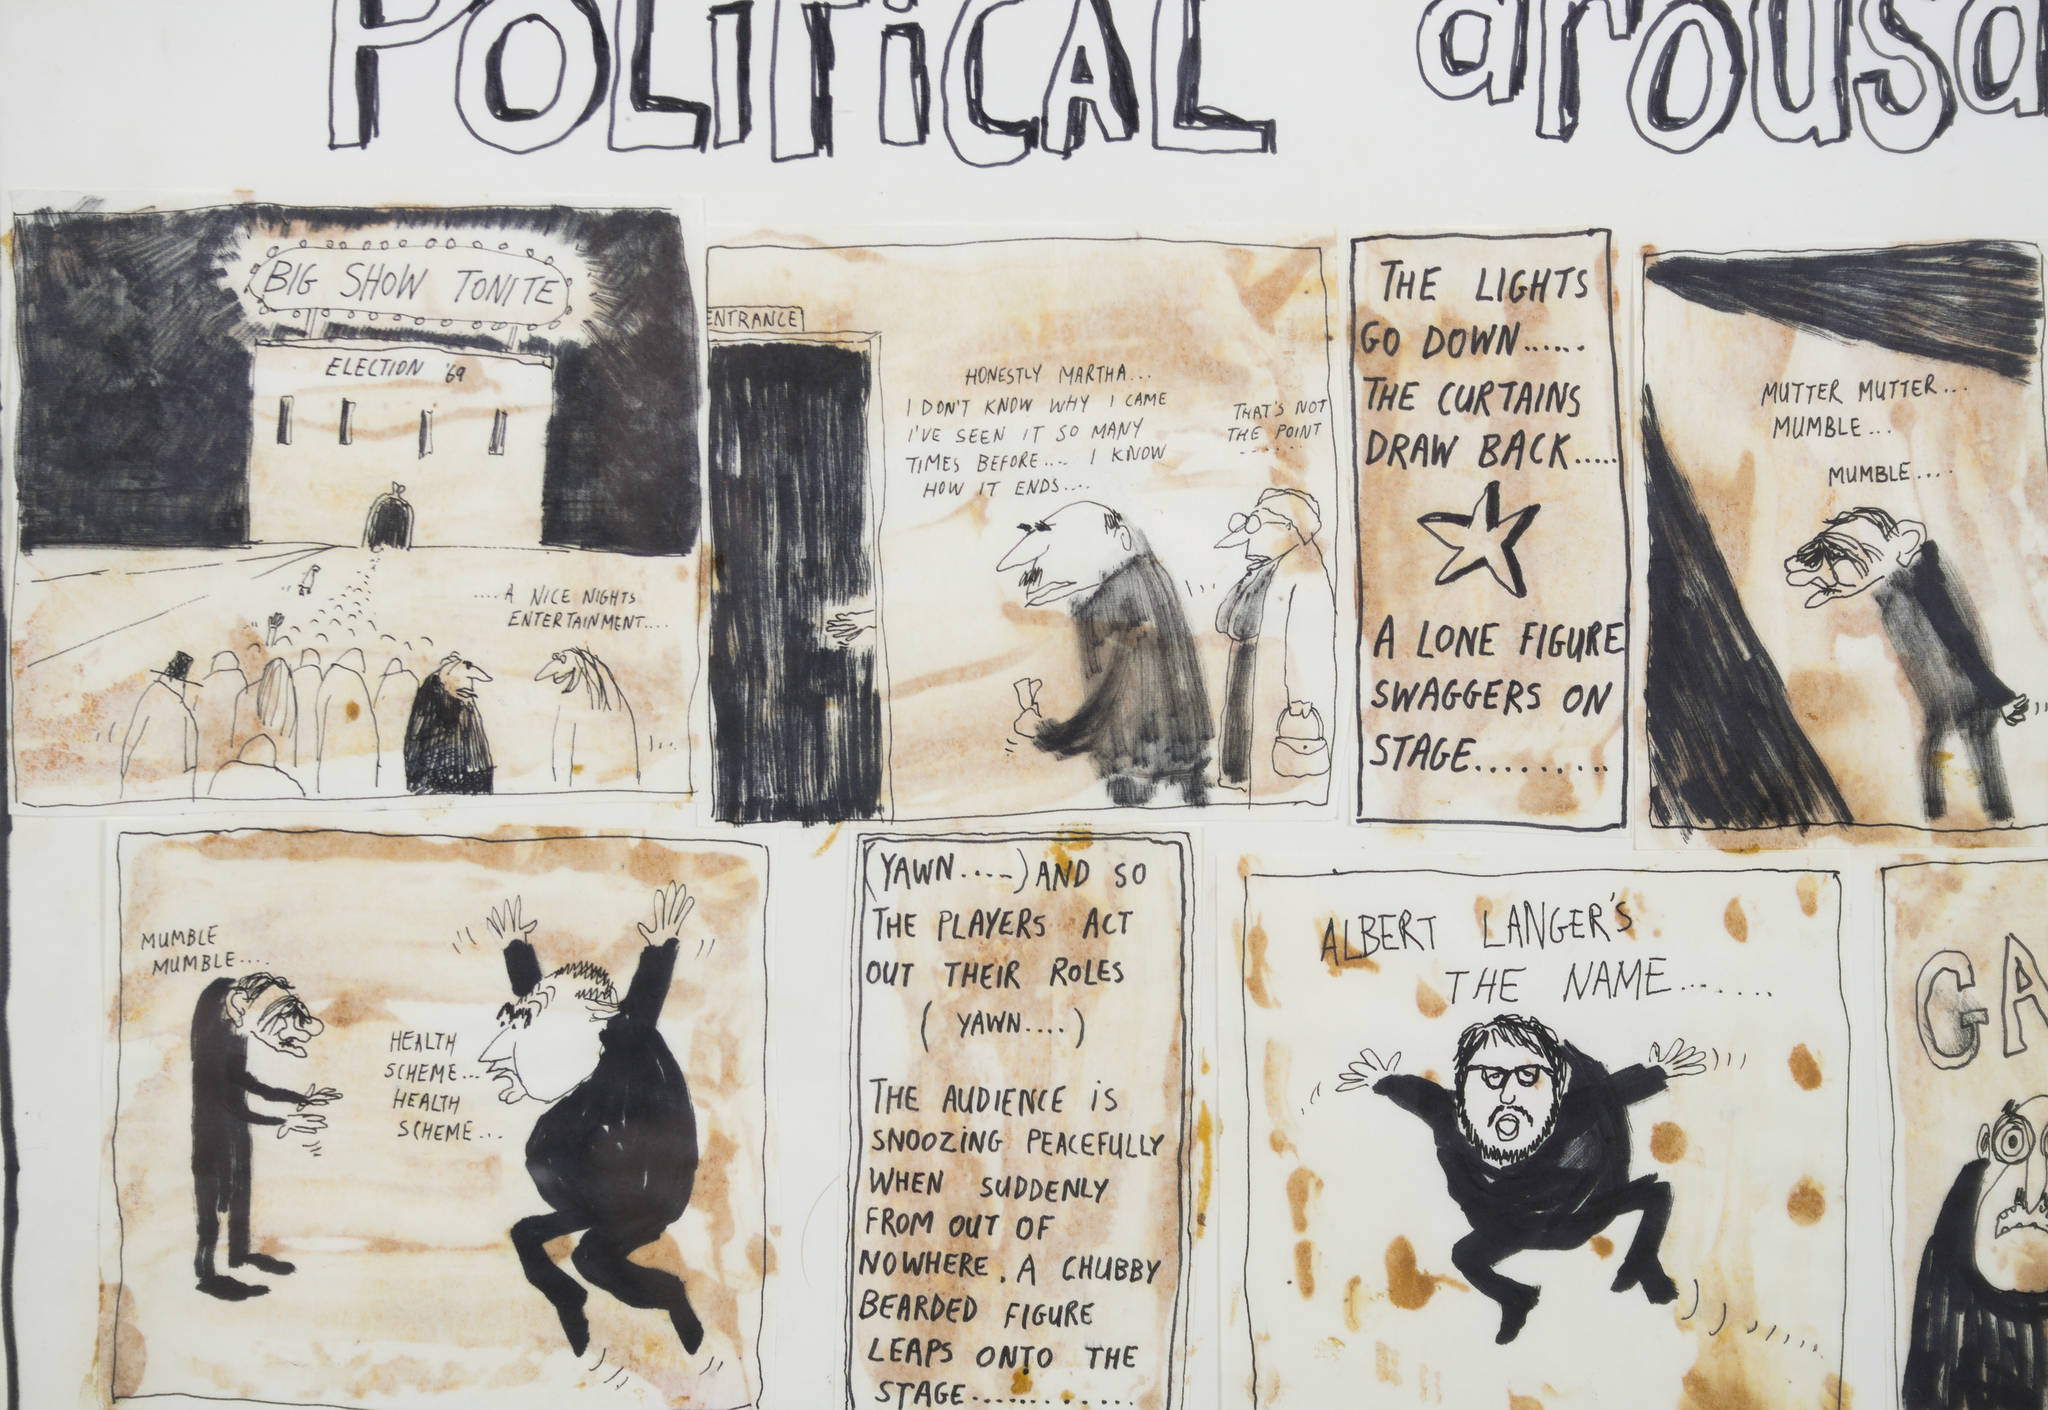 POLITICAL arousa
BIG SHOW TONITE
ELECTION '69
....A NICE NIGHTS
ENTERTAINMENT....
ENTRANCE
HONESTLY MARTHA...
I DON'T KNOW WHY I CAME
I'VE SEEN IT SO MANY
TIMES BEFORE.... I KNOW
HOW IT ENDS....
THAT'S NOT
THE POINT
.......
THE LIGHTS
GO DOWN......
THE CURTAINS
DRAW BACK.....
A LONE FIGURE
SWAGGERS ON
STAGE.........
MUTTER MUTTER...
MUMBLE...
MUMBLE....
MUMBLE
MUMBLE....
HEALTH
SCHEME...
HEALTH
SCHEME...
(YAWN.....) AND SO
THE PLAYERS ACT
OUT THEIR ROLES
( YAWN....)
THE AUDIENCE iS
SNOOZING PEACEFULLY
WHEN SUDDENLY
FROM OUT OF
NOWHERE. A CHUBBY
BEARDED FIGURE
LEAPS ONTO THE
STAGE.............
ALBERT LANGER'S
THE NAME.......
GA